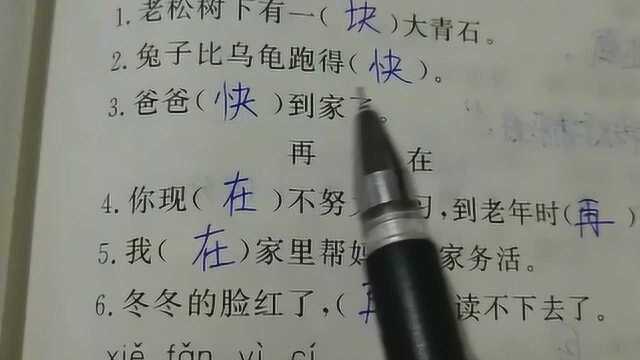 1.老松树下有一(块)大青石。
2.兔子比乌龟跑得(快)。
3.爸爸(快)到家了。
再 在
4.你现(在)不努 习,到老年时(再
5.我(在)家里帮 家务活。
6.冬冬的脸红了,(再 读不下去了。
xiě fǎn yì cí